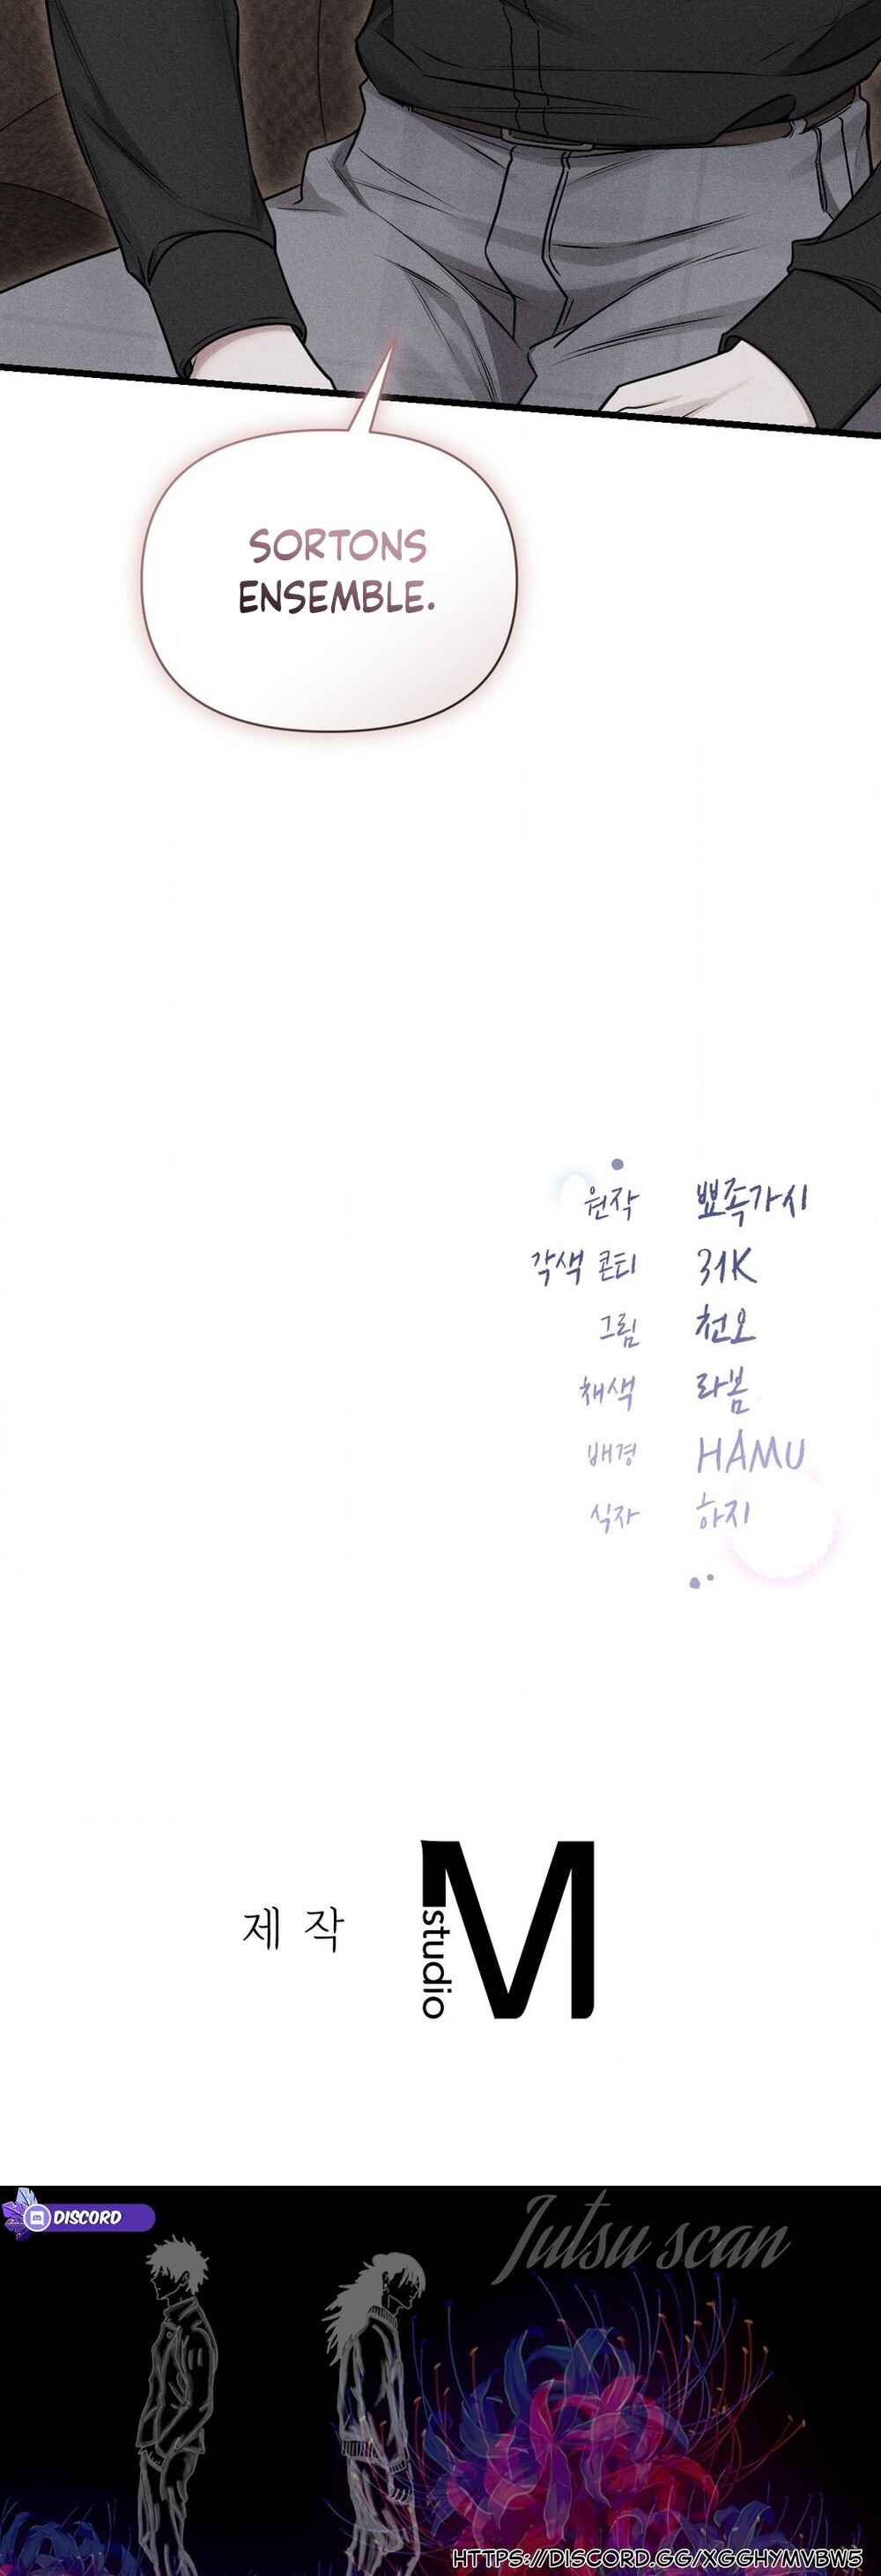 SORTONS
ENSEMBLE.
원작 뾰족가시
각색 콘티 31K
그림 천오
채색 라봄
배경 HAMU
식자 하지
제작 M studio
DISCORD
Jutsu scan
HTTPS://DISCORD.GG/XGGHYMVBW5